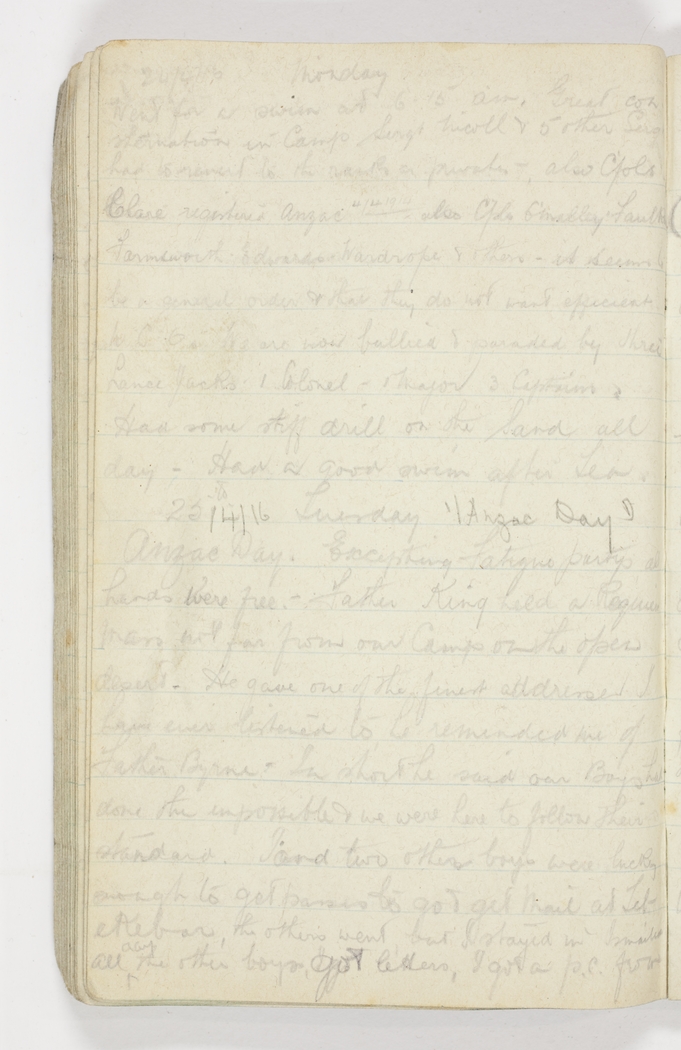 24/4/16 Monday
Went for a swim at 6.15 am. Great con
sternation in Camp Sergt Nicoll & 5 other Serg
had to revert to the ranks as privates -, also Cpls
Clare registered Anzac also Cpls O'Malley Faulk
Farnsworth Edwards Wardrope & others - it seems to
be a general order & that they do not want efficient
N C O's are now bullied & paraded by three
Lance Jacks 1 Colonel - 1 Major 3 Captains,
Had some stiff drill on the Sand all
day - Had a good swim after tea.
25/4/16 Tuesday "Anzac Day"
Anzac Day. Excepting fatigue partys al
hands were free. - Father King held a Requie
Mass not far from our Camp on the open
desert - He gave one of the finest addresses I
have ever listened to he reminded me of
Father Byrne - In short he said our Boys had
done the impossible & we were here to follow their
standard. I and two other boys were lucky
enough to get passes to go & get mail at Tel-
elKebir, the others went but I stayed in Ismailia
all the other boys got letters, I got a p.c. from